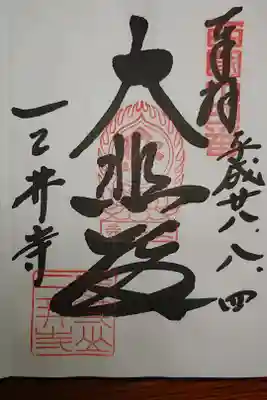 奉拝
平成廿八.八.四
大悲殿
三井寺